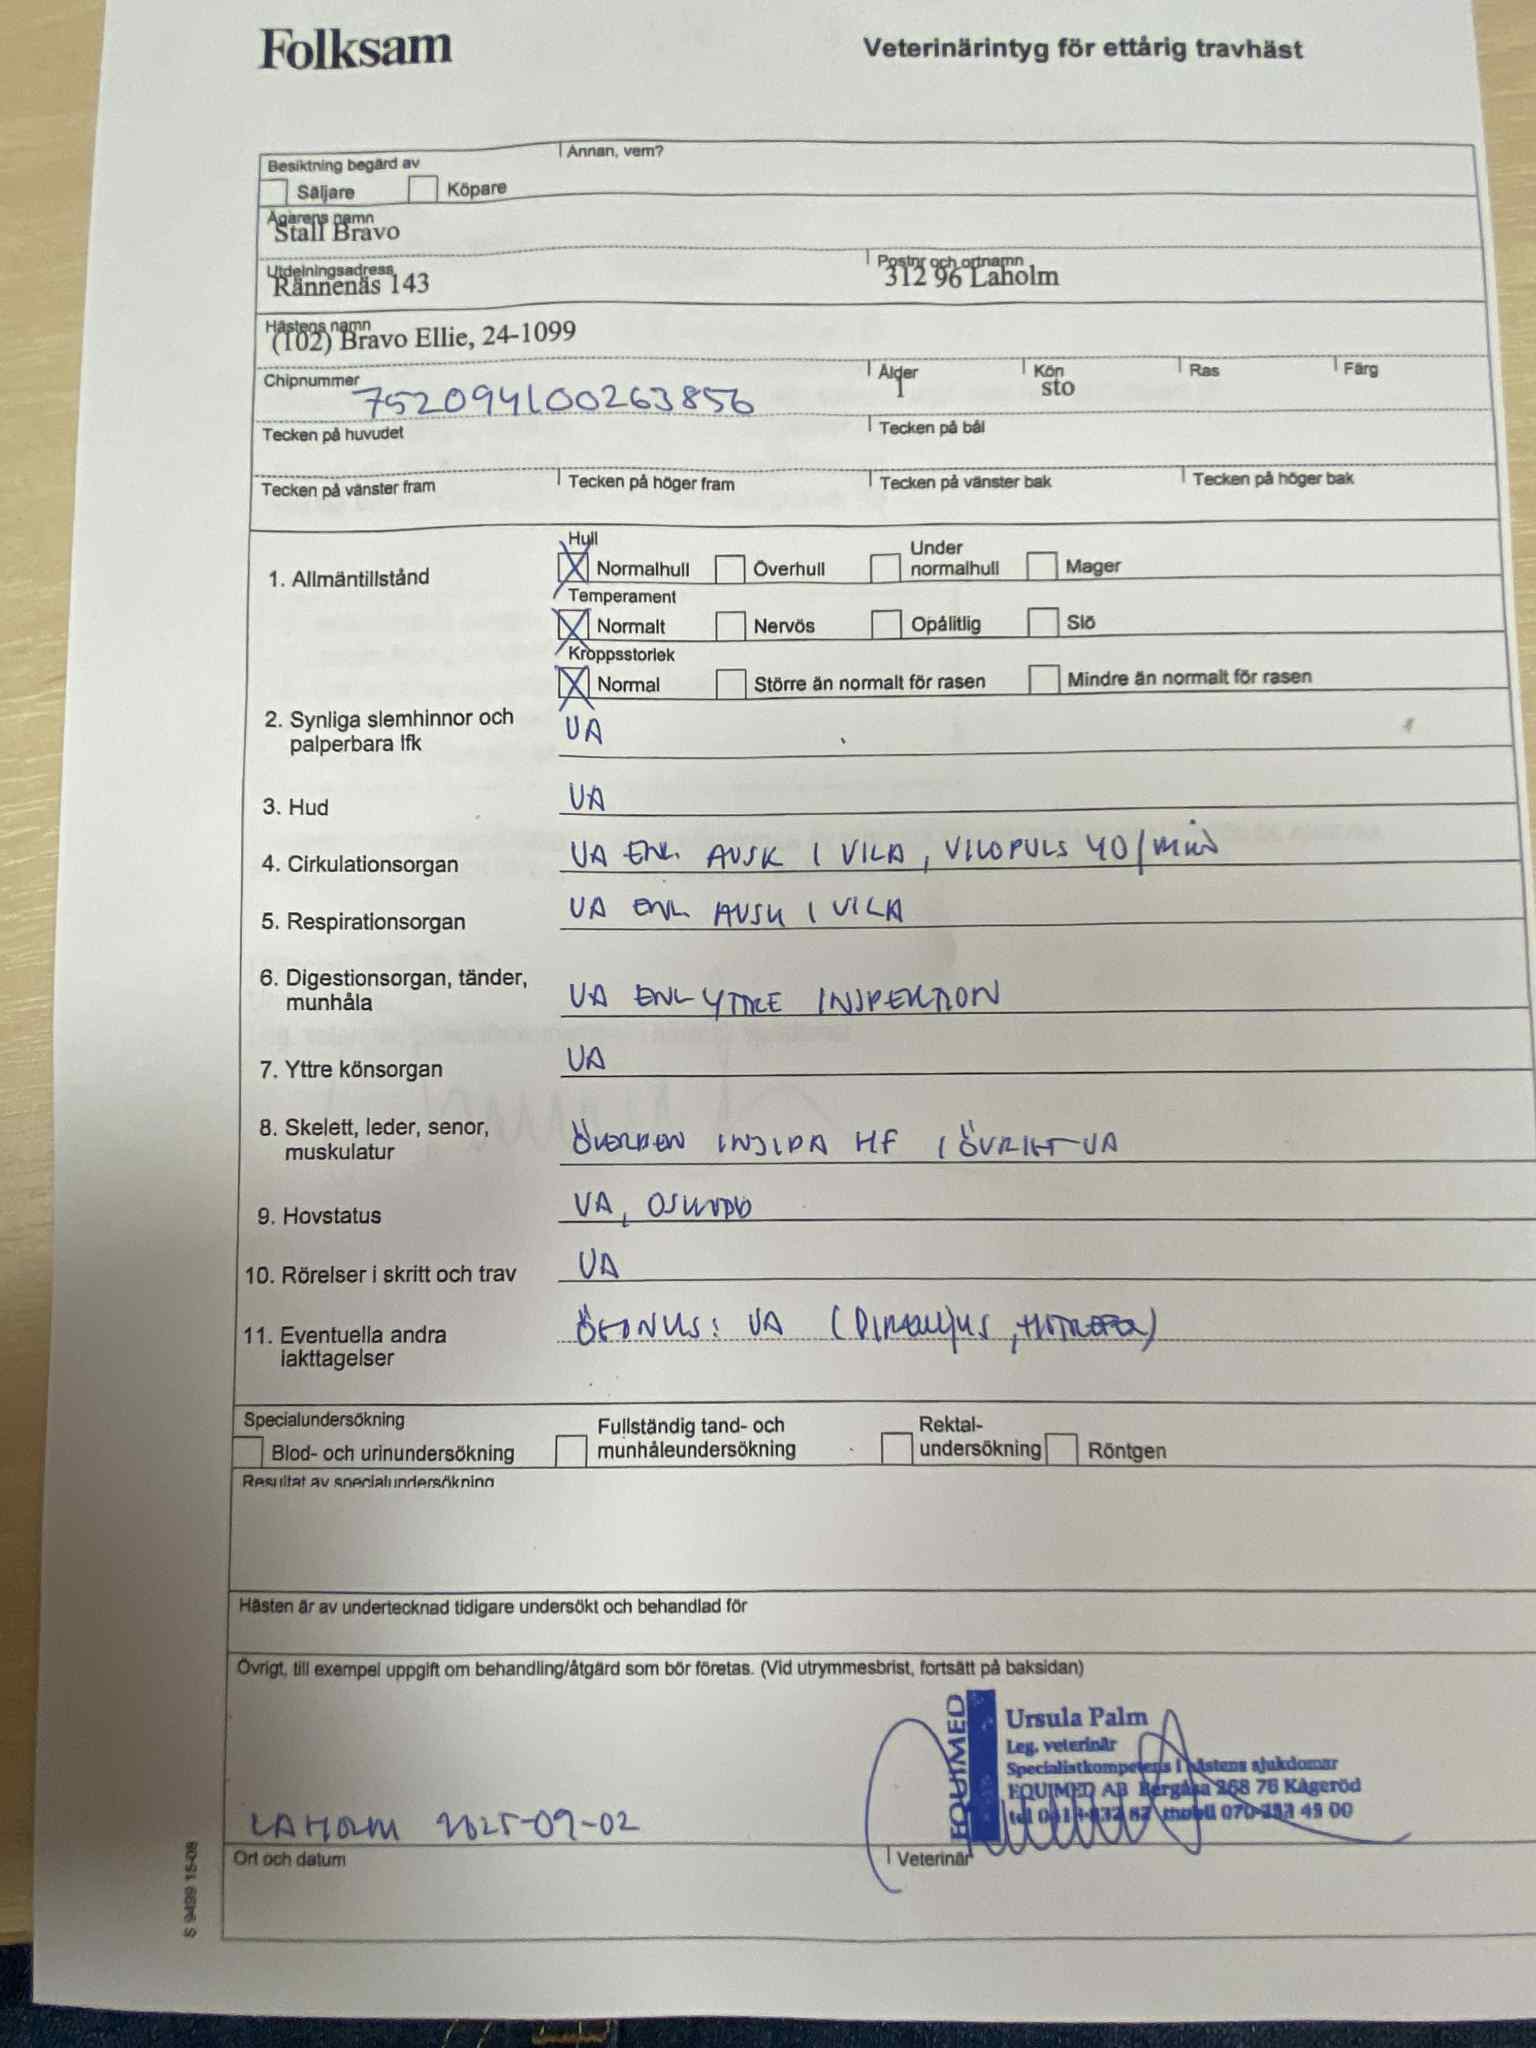 Folksam
Veterinärintyg för ettårig travhäst
Besiktning begärd av
Annan, vem?
Säljare Köpare
Ägarens namn
Stall Bravo
Utdelningsadress Postnr och ortnamn
Rännenäs 143 312 96 Laholm
Hästens namn
(102) Bravo Ellie, 24-1099
Chipnummer Ålder Kön Ras Färg
752094100263856 1 sto
Tecken på huvudet Tecken på bål
Tecken på vänster fram Tecken på höger fram Tecken på vänster bak Tecken på höger bak
Hull
1. Allmäntillstånd X Normalhull Överhull Under normalhull Mager
Temperament
X Normalt Nervös Opålitlig Slö
Kroppsstorlek
X Normal Större än normalt för rasen Mindre än normalt för rasen
2. Synliga slemhinnor och
palperbara lfk
UA
3. Hud UA
4. Cirkulationsorgan UA ENL AUSK I VILA, VILOPULS 40/min
5. Respirationsorgan UA ENL AUSK I VILA
6. Digestionsorgan, tänder,
munhåla
UA ENL YTTRE INSPEKTION
7. Yttre könsorgan UA
8. Skelett, leder, senor,
muskulatur
ÖVERBEN INSIDA HF I ÖVRIGT UA
9. Hovstatus UA, OSKODD
10. Rörelser i skritt och trav UA
11. Eventuella andra
iakttagelser
ÖGONUS: UA (DIREKTLJUS,
Specialundersökning
Blod- och urinundersökning
Fullständig tand- och
munhåleundersökning
Rektal-
undersökning
Röntgen
Resultat av specialundersökning
Hästen är av undertecknad tidigare undersökt och behandlad för
Övrigt, till exempel uppgift om behandling/åtgärd som bör företas. (Vid utrymmesbrist, fortsätt på baksidan)
EQUIMED
Ursula Palm
Leg. veterinär
Specialistkompetens i hästens sjukdomar
EQUIMED AB Bergåsa 268 76 Kågeröd
mobil 45 00
LAHOLM 2025-09-02
Ort och datum Veterinär
S 9499 15-08